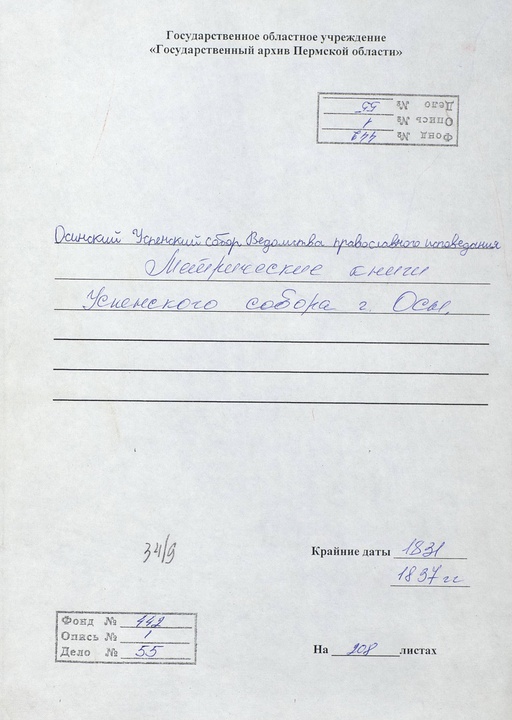 Государственное областное учреждение
«Государственный архив Пермской области»
Фонд № 442
Опись № 1
Дело № 55
Осинский Успенский собор Ведомства православного исповедания
Метрические книги
Успенского собора г. Осы.
34/9
Крайние даты 1831
1837 гг
Фонд № 442
Опись № 1
Дело № 55
На 208 листах